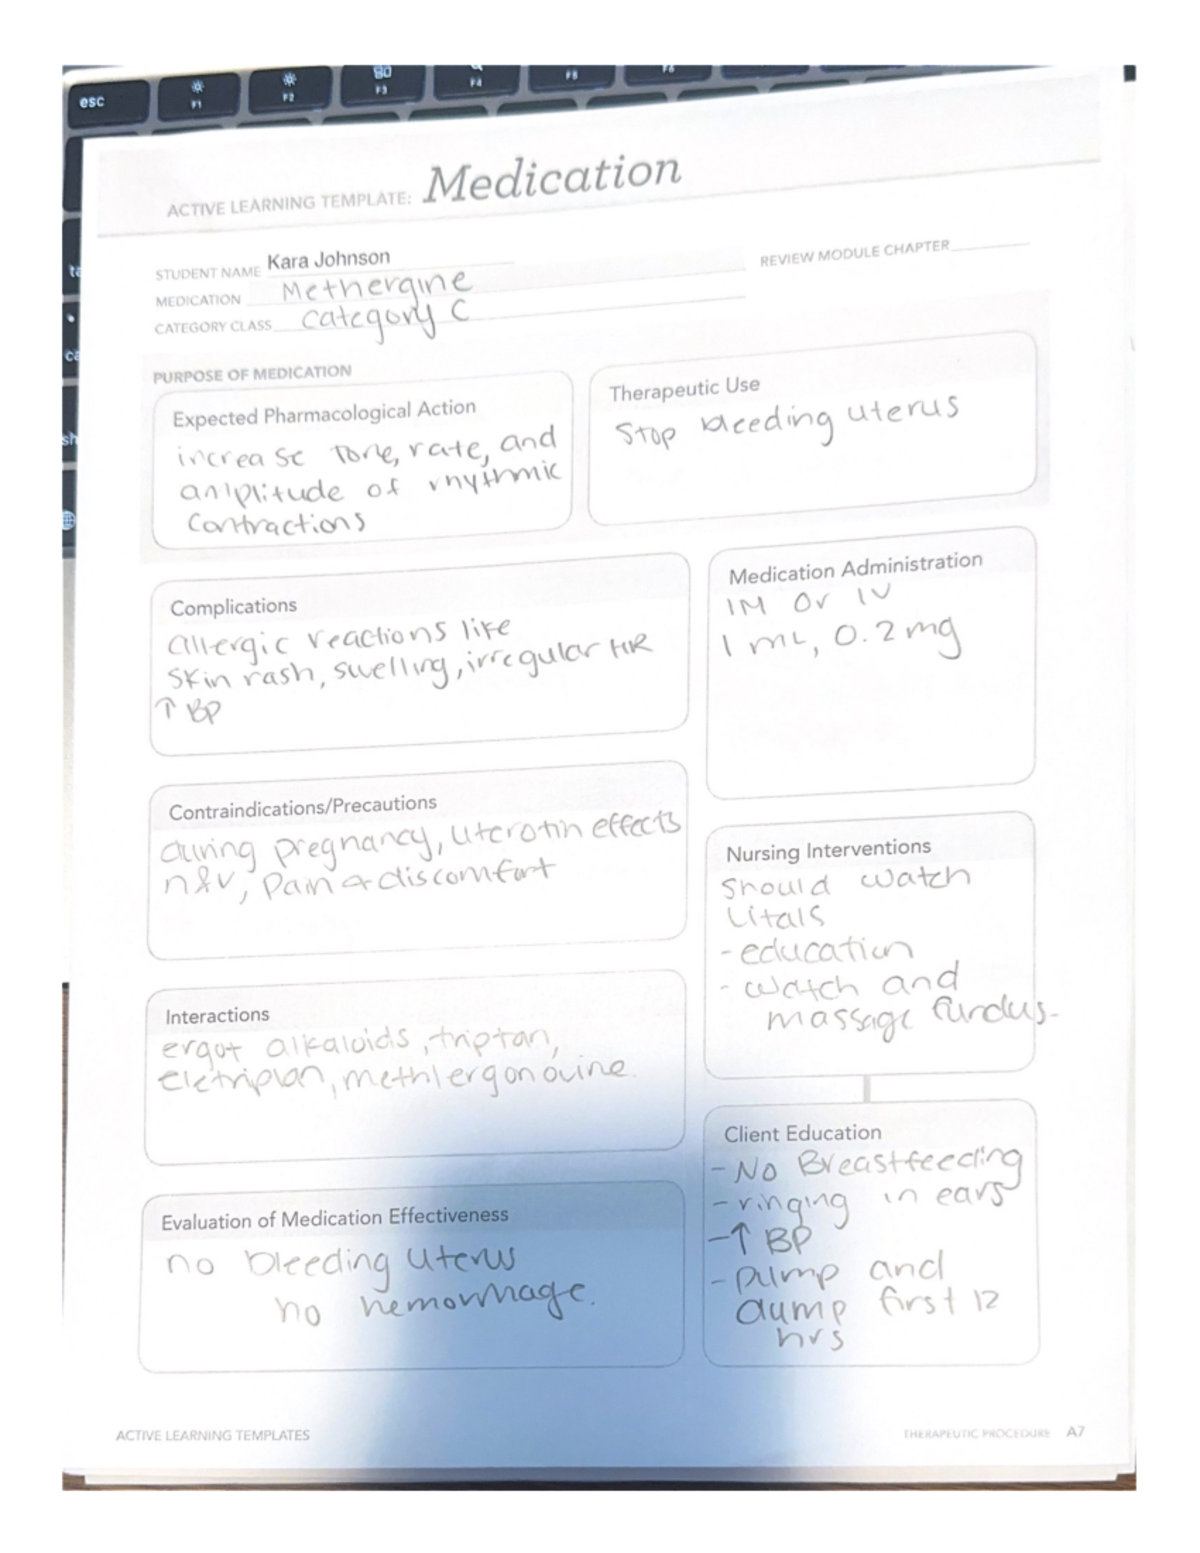 esc
F1
F2
80
F3
F4
F5
ACTIVE LEARNING TEMPLATE: Medication
STUDENT NAME Kara Johnson
REVIEW MODULE CHAPTER
MEDICATION Methergine
CATEGORY CLASS Category C
PURPOSE OF MEDICATION
Expected Pharmacological Action
increase tone, rate, and
amplitude of rhythmic
contractions
Therapeutic Use
Stop bleeding uterus
Complications
allergic reactions like
skin rash, swelling, irregular HR
↑ BP
Medication Administration
IM or IV
1 mL, 0.2 mg
Contraindications/Precautions
during pregnancy, uterotin effects
n&v, pain & discomfort
Nursing Interventions
Should watch
vitals
- education
- watch and
massage fundus-
Interactions
ergot alkaloids, triptan,
eletriptan, methlergonovine.
Client Education
- No Breastfeeding
- ringing in ears
- ↑ BP
- pump and
dump first 12
hrs
Evaluation of Medication Effectiveness
no bleeding uterus
no hemorrhage.
ACTIVE LEARNING TEMPLATES
THERAPEUTIC PROCEDURE A7